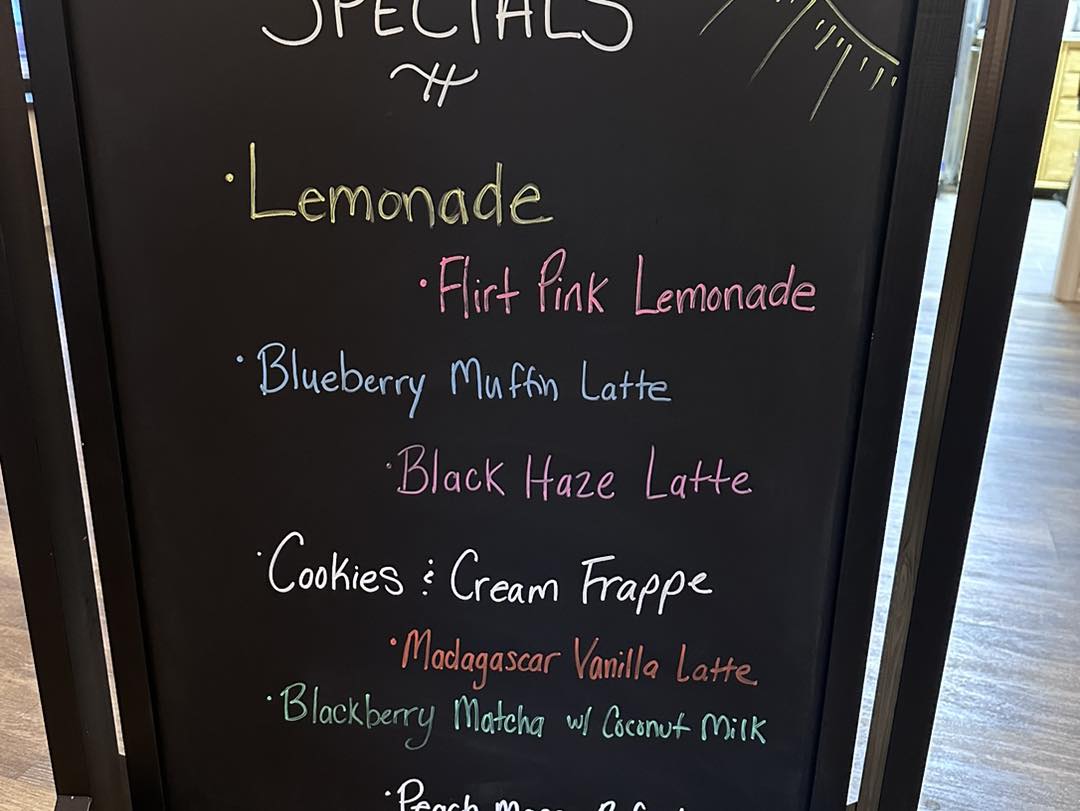 SPECIALS
· Lemonade
· Flirt Pink Lemonade
· Blueberry Muffin Latte
· Black Haze Latte
· Cookies & Cream Frappe
· Madagascar Vanilla Latte
· Blackberry Matcha w/ Coconut Milk
· Peach